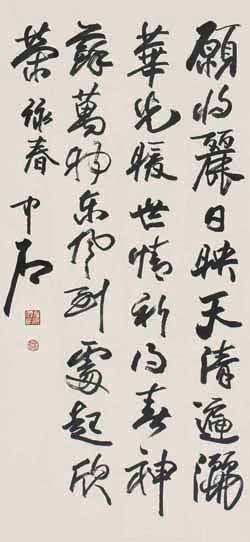 願将麗日映天清遍灑
華光暖世情祈得春神
蘇萬物东風到處起欣
榮 詠春 中石